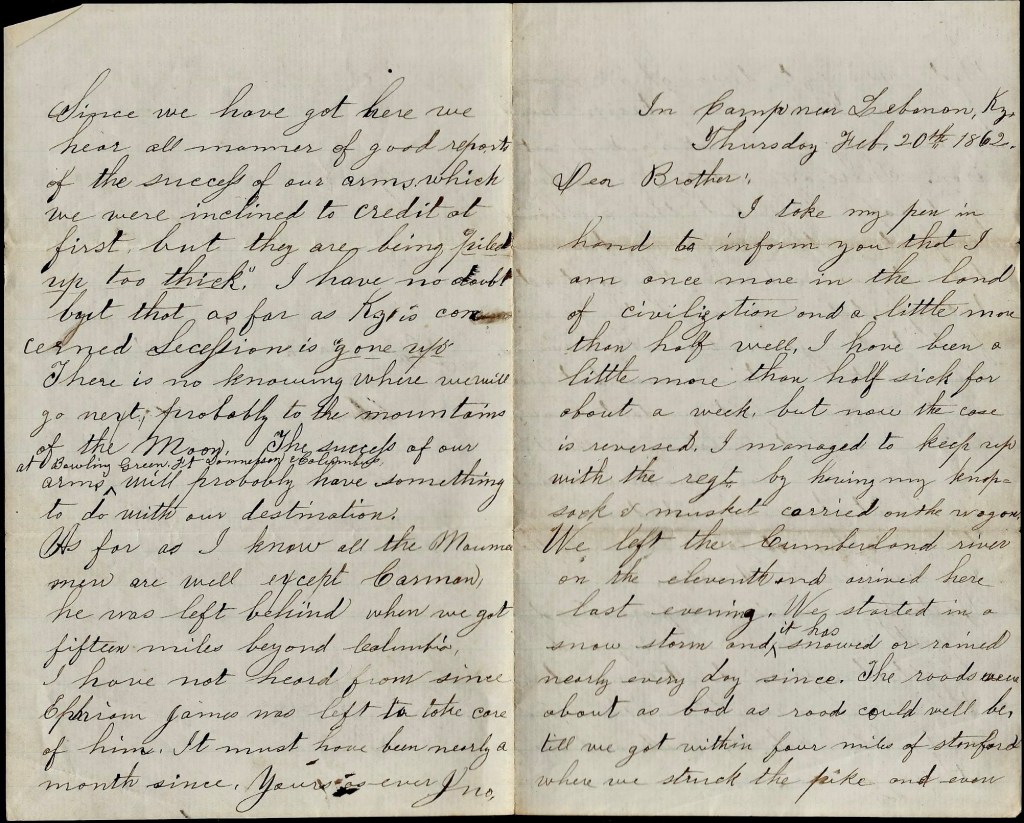 In Camp near Lebanon, Ky.
Thursday Feb. 20th 1862.
Dear Brother:
I take my pen in
hand to inform you that I
am once more in the land
of civilization and a little more
than half well. I have been a
little more than half sick for
about a week, but now the case
is reversed. I managed to keep up
with the regt. by having my knap=
sack & musket carried on the wagon.
We left the Cumberland river
on the eleventh and arrived here
last evening. We started in a
snow storm and it has snowed or rained
nearly every day since. The roads were
about as bad as road could well be,
till we got within four miles of Stanford
where we struck the pike and even
Since we have got here we
hear all manner of good reports
of the success of our arms, which
we were inclined to credit at
first, but they are being "piled
up too thick". I have no doubt
but that as far as Ky is con
cerned Secession is gone up
There is no knowing where we will
go next; probably to the mountains
of the Moon. The success of our
arms at Bowling Green, Ft Donnelson & Columbus will probably have something
to do with our destination.
As far as I know all the Maumee
men are well except Carman,
he was left behind when we got
fifteen miles beyond Columbia.
I have not heard from since
Ephriam James was left to take care
of him. It must have been nearly a
month since. Yours as ever Jno.